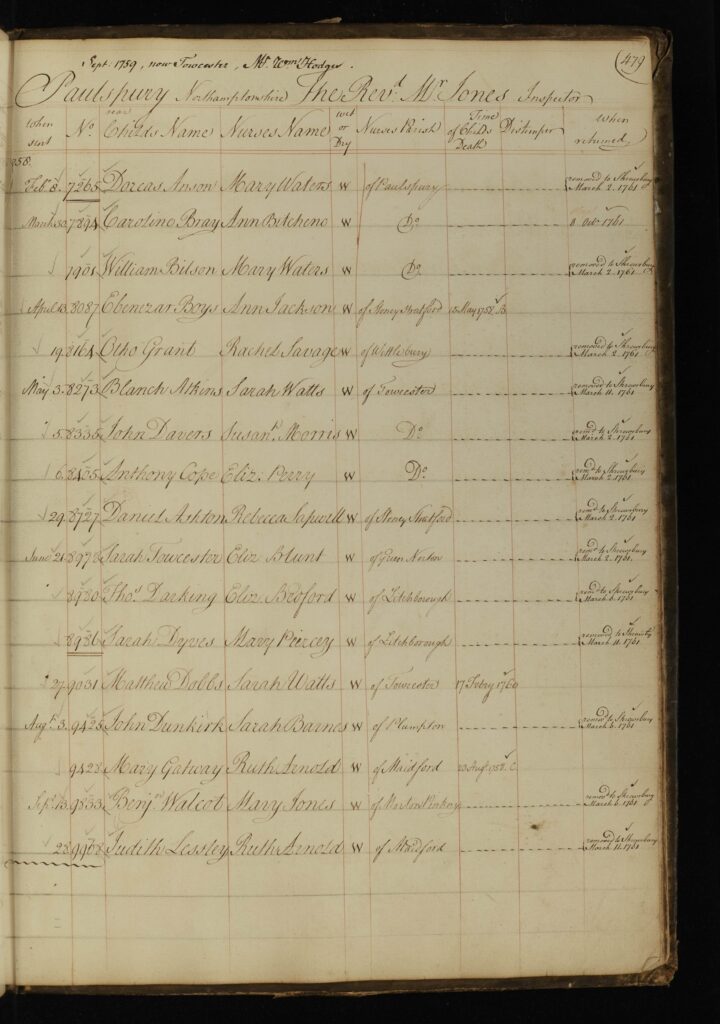 Sept. 1759, now Towcester, Mr. Wm. Hodges.
479
Paulspury Northamptonshire The Revd. Mr Jones Inspector
When sent No. Childs Name Nurses Name wet or Dry Nurses Parish Time of Childs Death Distemper When returned
1758
Feb. 8. 7265 Dorcas Anson Mary Waters W of Paulspury removed to Shrewsbury March 2. 1761
March 30. 7894 Caroline Bray Ann Bitcheno W Do. 11 Octr. 1761
7901 William Bilson Mary Waters W Do. removed to Shrewsbury March 2. 1761
April 13. 8087 Ebenezar Boys Ann Jackson W of Stoney Stratford May 1758
19. 8164 Otho Grant Rachel Savage W of Wittlebury removed to Shrewsbury March 2. 1761
May 3. 8273 Blanch Atkins Sarah Watts W of Towcester removed to Shrewsbury March 11. 1761
5. 8335 John Davers Susanh. Morris W Do. removd. to Shrewsbury March 2. 1761
6. 8405 Anthony Cope Eliz. Perry W Do. remd. to Shrewsbury March 2. 1761
29. 8727 Daniel Ashton Rebecca W of Stoney Stratford remd. to Shrewsbury March 2. 1761
June 21. 8978 Sarah Towcester Eliz Blunt W of Green Norton remd. to Shrewsbury March 2. 1761.
8980 Thos. Darking Eliz. Bedford W of Litchborough remd. to Shrewsbury March 6. 1761
8986 Sarah Dyves Mary Piercey W of Litchborough removed to March 11. 1761
27. 9031 Matthew Dobbs Sarah Watts W of Towcester 17 Febry 1760
Augt. 3. 9425 John Dunkirk Sarah Barnes W of Plumpton removd. to Shrewsbury March 6. 1761
9428 Mary Gatway Ruth Arnold W of Maidford 23 Augt 1758. C
Sept. 13. 9833 Benjn. Walcot Mary Jones W of Morton Pinkney removd. to Shrewsbury March 6. 1761
28. 9958 Judith Lessley Ruth Arnold W of Maidford removed to Shrewsbury March 11. 1761